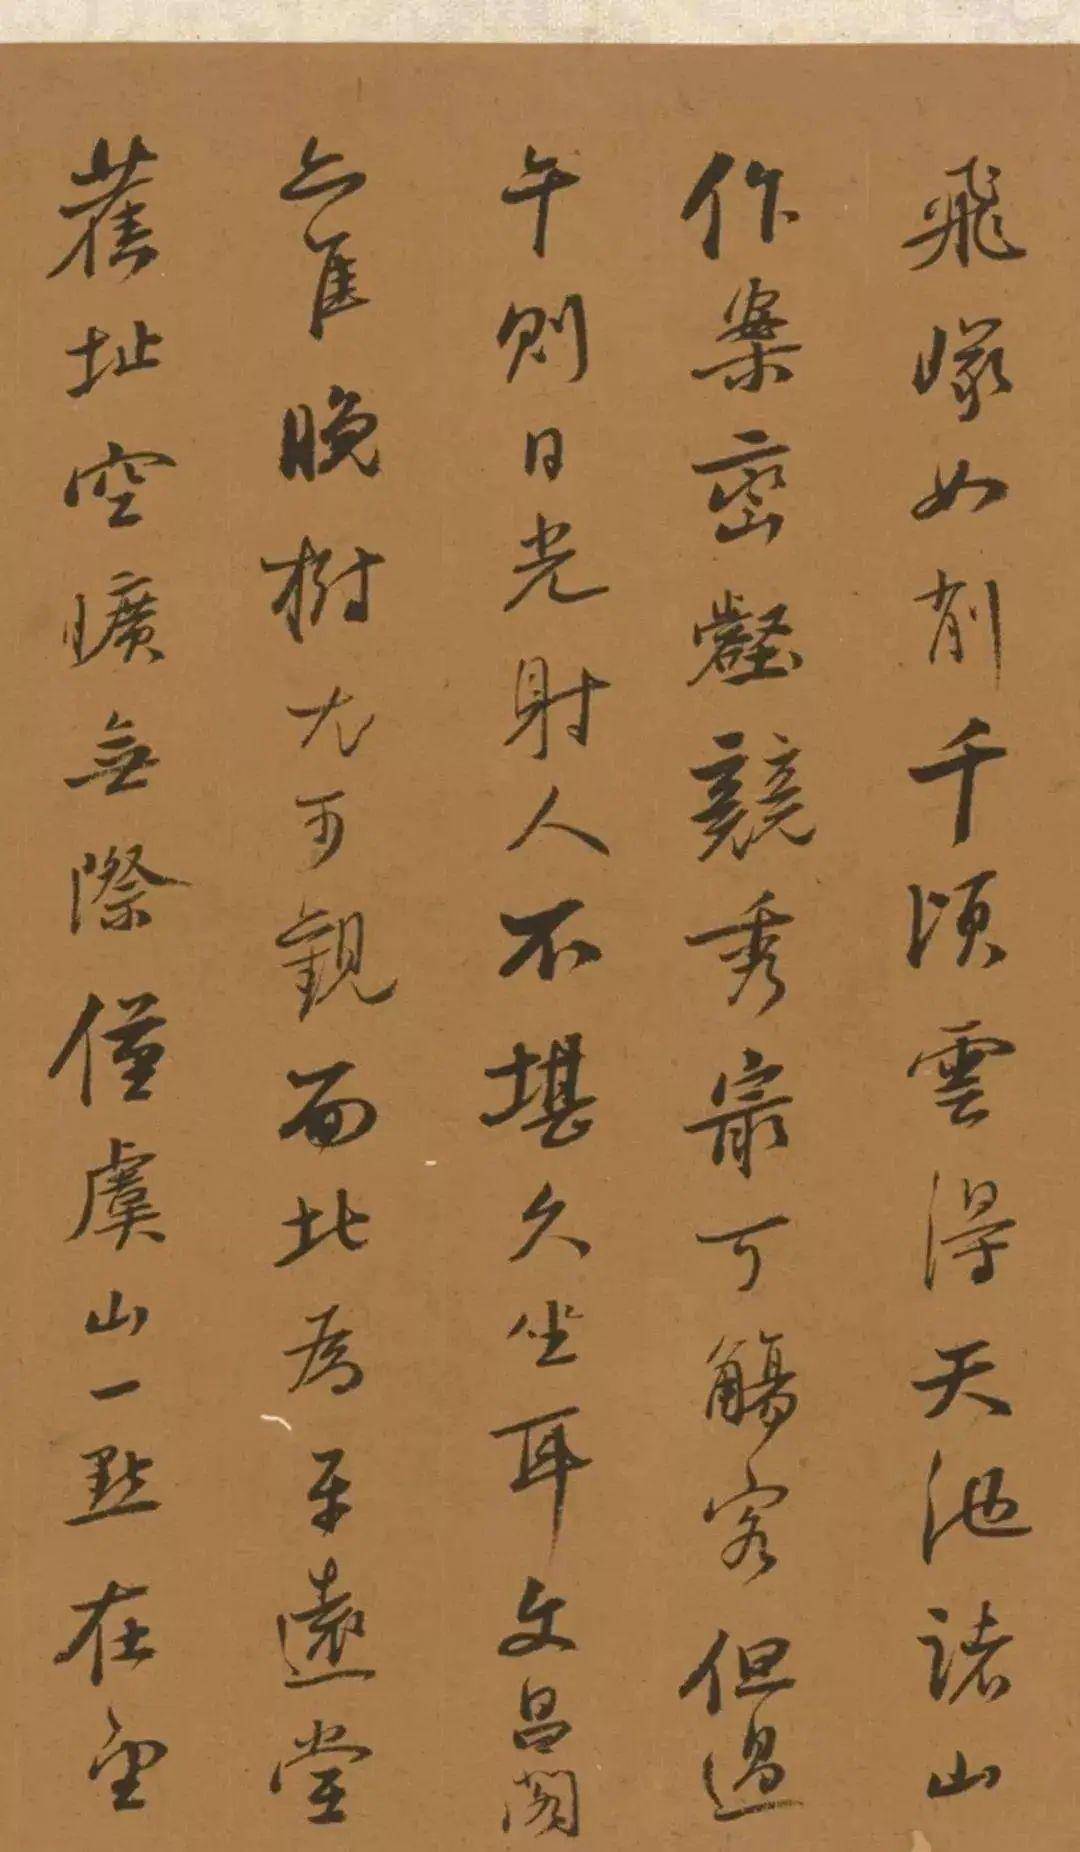 飛巘如削千頃雲得天池諸山
作案巒壑競秀最可觴客但過
午則日光射人不堪久坐耳文昌閣
亦佳晚樹尤可觀面北為平遠堂
舊址空曠無際僅虞山一點在望